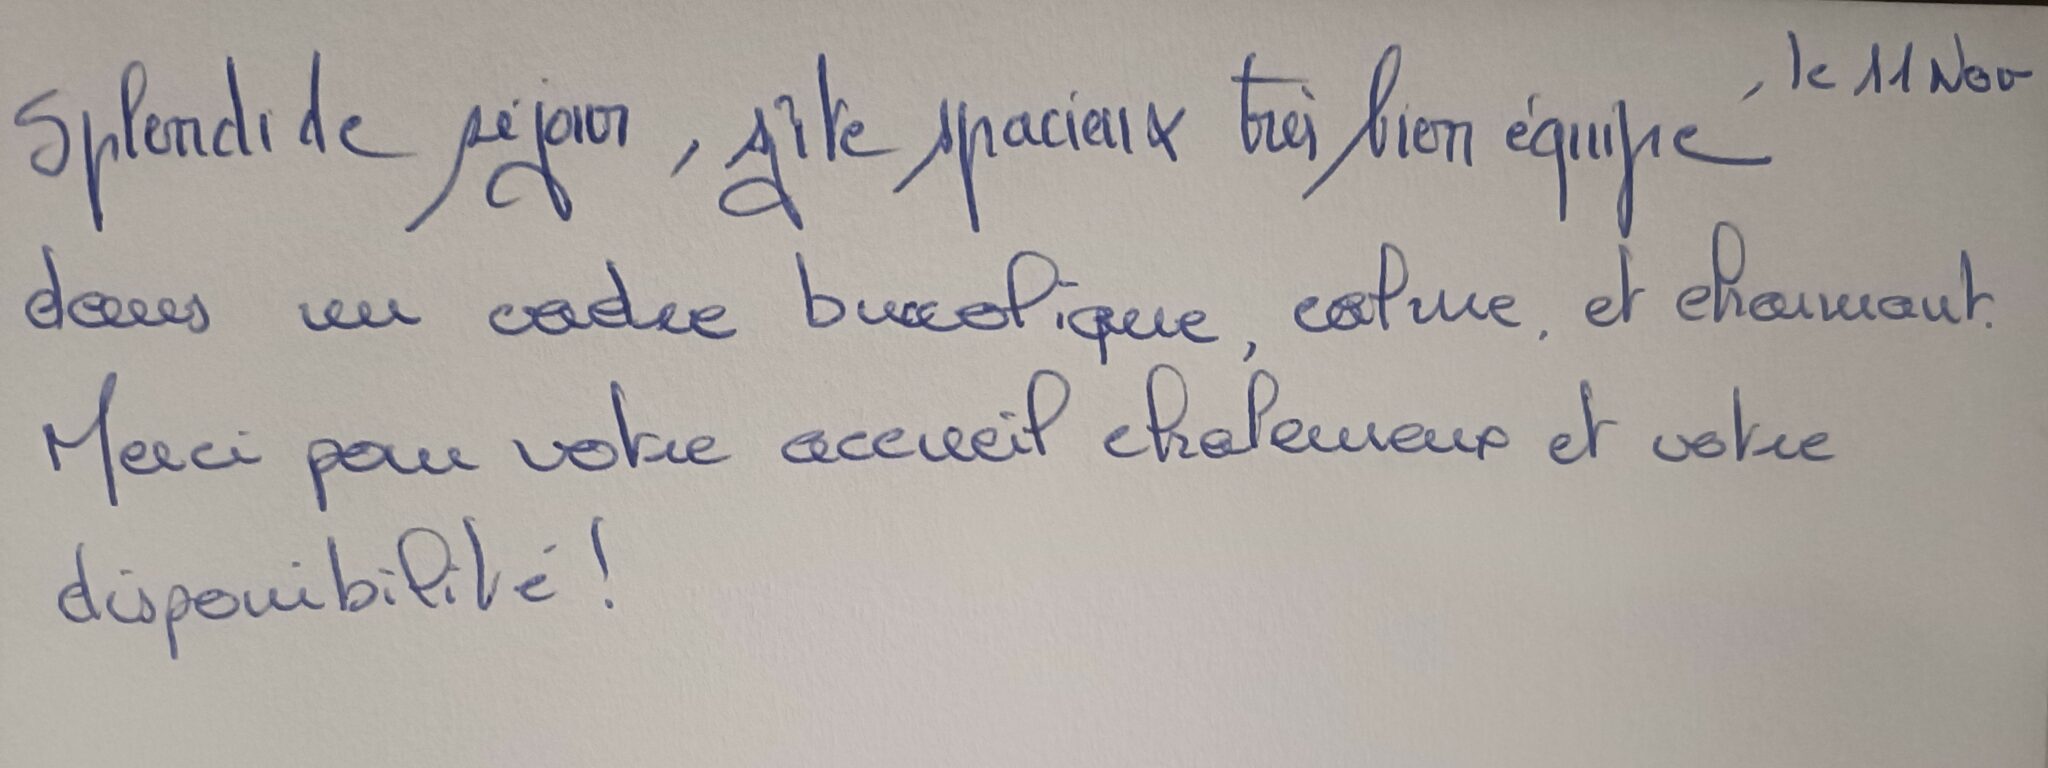 Splendide séjour, gîte spacieux très bien équipé, le 11 Nov
dans un cadre bucolique, calme, et charmant.
Merci pour votre accueil chaleureux et votre
disponibilité !